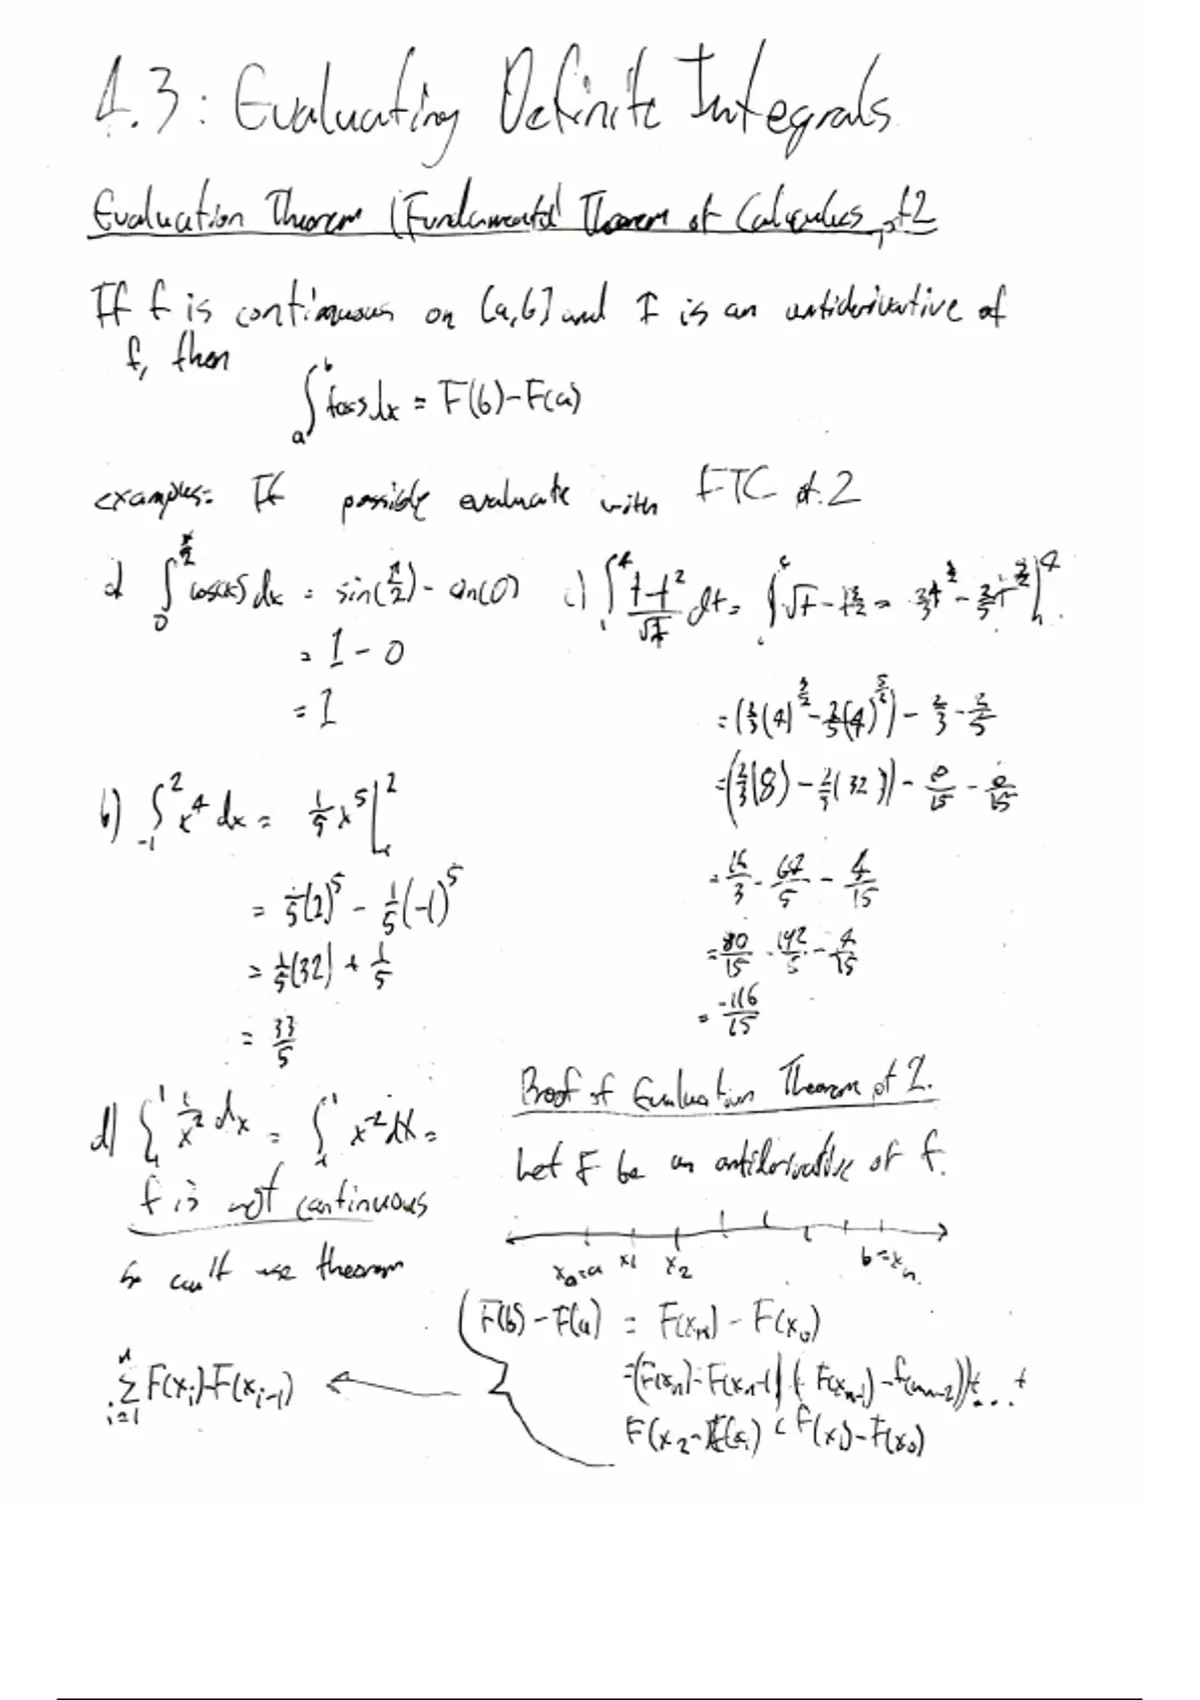 4.3: Evaluating Definite Integrals
Evaluation Theorem (Fundamental Theorem of Calculus, pt 2
If f is continuous on [a,b] and F is an antiderivative of
f, then
∫_a^b f(x)dx = F(b)-F(a)
examples: If possible evaluate with FTC pt. 2
a) ∫_0^{π/2} cos(x) dx = sin(π/2) - sin(0)
= 1 - 0
= 1
b) ∫_{-1}^2 x^4 dx = 1/5 x^5 |^2
= 1/5(2)^5 - 1/5(-1)^5
= 1/5(32) + 1/5
= 33/5
c) ∫_1^4 (t-t^2)/√t dt = ∫ √t - t^{3/2} = 2/3 t^{3/2} - 2/5 t^{5/2} |^4
= (2/3(4)^{3/2} - 2/5(4)^{5/2}) - 2/3 - 2/5
= (2/3(8) - 2/5(32)) -
= 16/3 - 64/5 - 4/15
= 80/15 - 192/5 - 4/15
= -116/15
d) ∫_{-1}^1 1/x^2 dx = ∫_{-1}^1 x^{-2} dx =
f is not continuous
so can't use theorem
Proof of Evaluation Theorem pt 2.
Let F be an antiderivative of f.
x_0=a x_1 x_2 b=x_n
F(b) - F(a) = F(x_n) - F(x_0)
=(F(x_n)-F(x_{n-1})) + (F(x_{n-1})-F(x_{n-2}))+...+
F(x_2)-F(x_1) + F(x_1)-F(x_0)
∑_{i=1}^n F(x_i)-F(x_{i-1})